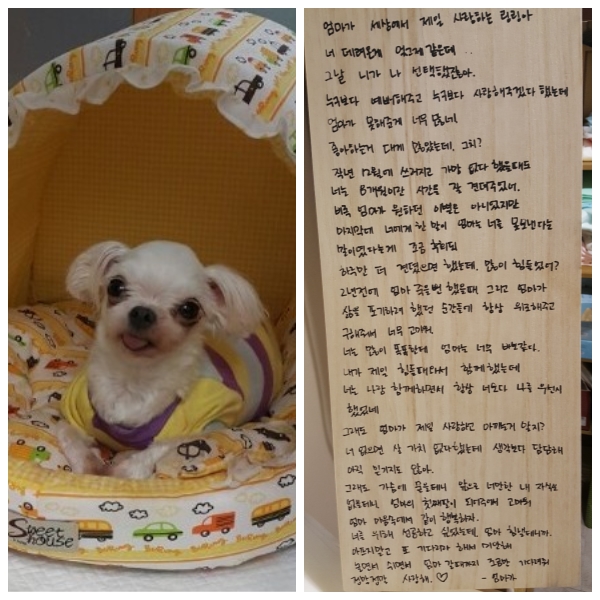 엄마가 세상에서 제일 사랑하는 링링아
너 데려온게 엊그제 같은데 ..
그날 니가 나 선택했잖아.
누구보다 예뻐해주고 누구보다 사랑해주겠다 했는데
엄마가 못해준게 너무 많네
좋아하는거 대게 많았는데. 그치?
작년 12월에 쓰러지고 가망 없다 했을때도
너는 8개월이란 시간을 잘 견뎌주었어.
비록 엄마가 원하던 이별은 아니였지만
마지막에 너에게 한 말이 엄마는 너를 못보낸다는
말이였다는게 조금 후회되
하루만 더 견뎠으면 했는데. 많이 힘들었어?
2년전에 엄마 죽을뻔 했을때 그리고 엄마가
삶을 포기하려 했던 순간들에 항상 위로해주고
구해줘서 너무 고마워
너는 많이 포동한데 엄마는 너무
내가 제일 힘들때 함께 했는데
너는 나랑 함께하면서 항상 너보다 나를 우선시
했었네
그래도 엄마가 제일 사랑하고 아끼는거 알지?
너 없으면 살 가치 없다했는데 생각보다 담담해
아직 믿기지도 않아.
그래도 가슴에 묻는데니 앞으로 너만한 내 자식도
없을테니. 엄마의 첫째딸이 되어주어 고마워
엄마 마음속에서 같이 행복하자.
너를 위해 성공하고 싶었는데. 엄마 힘낼테니까.
아프지말고 또 기다리라 해서 미안해
놀면서 쉬면서 엄마 갈때까지 조금만 기다려줘
정말정말 사랑해. ♡ - 엄마가
Sweet
house